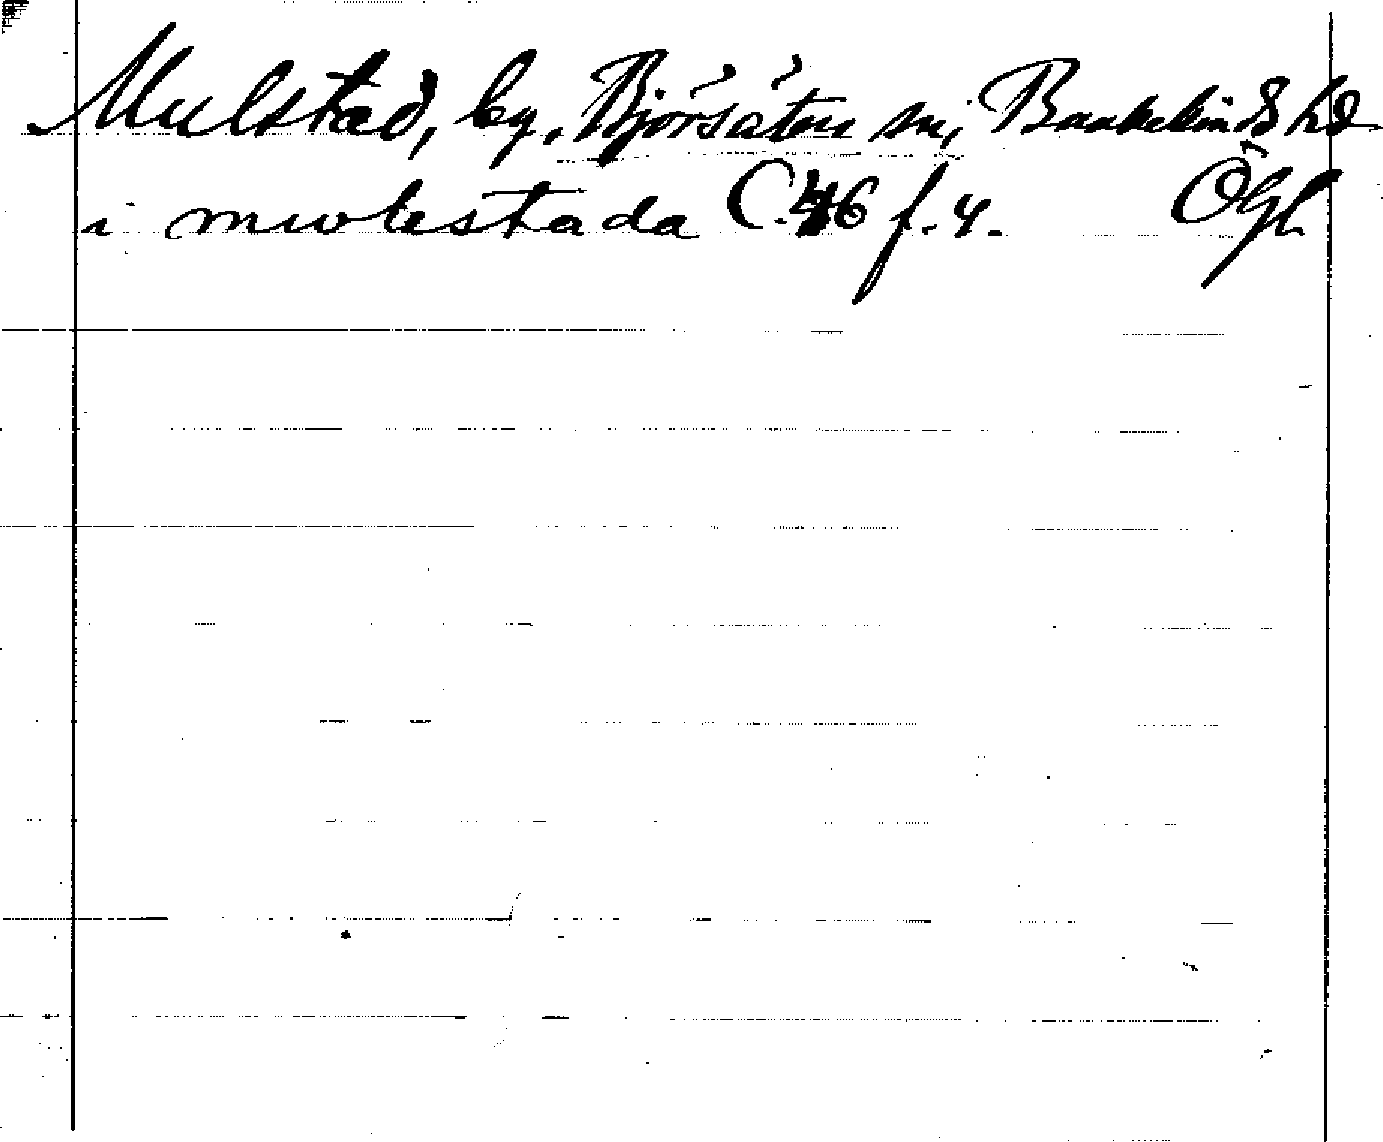 Mulstad, by, Björsäters sn, Bankekinds hd
i mwlestada C 46 f. 4. Ögl